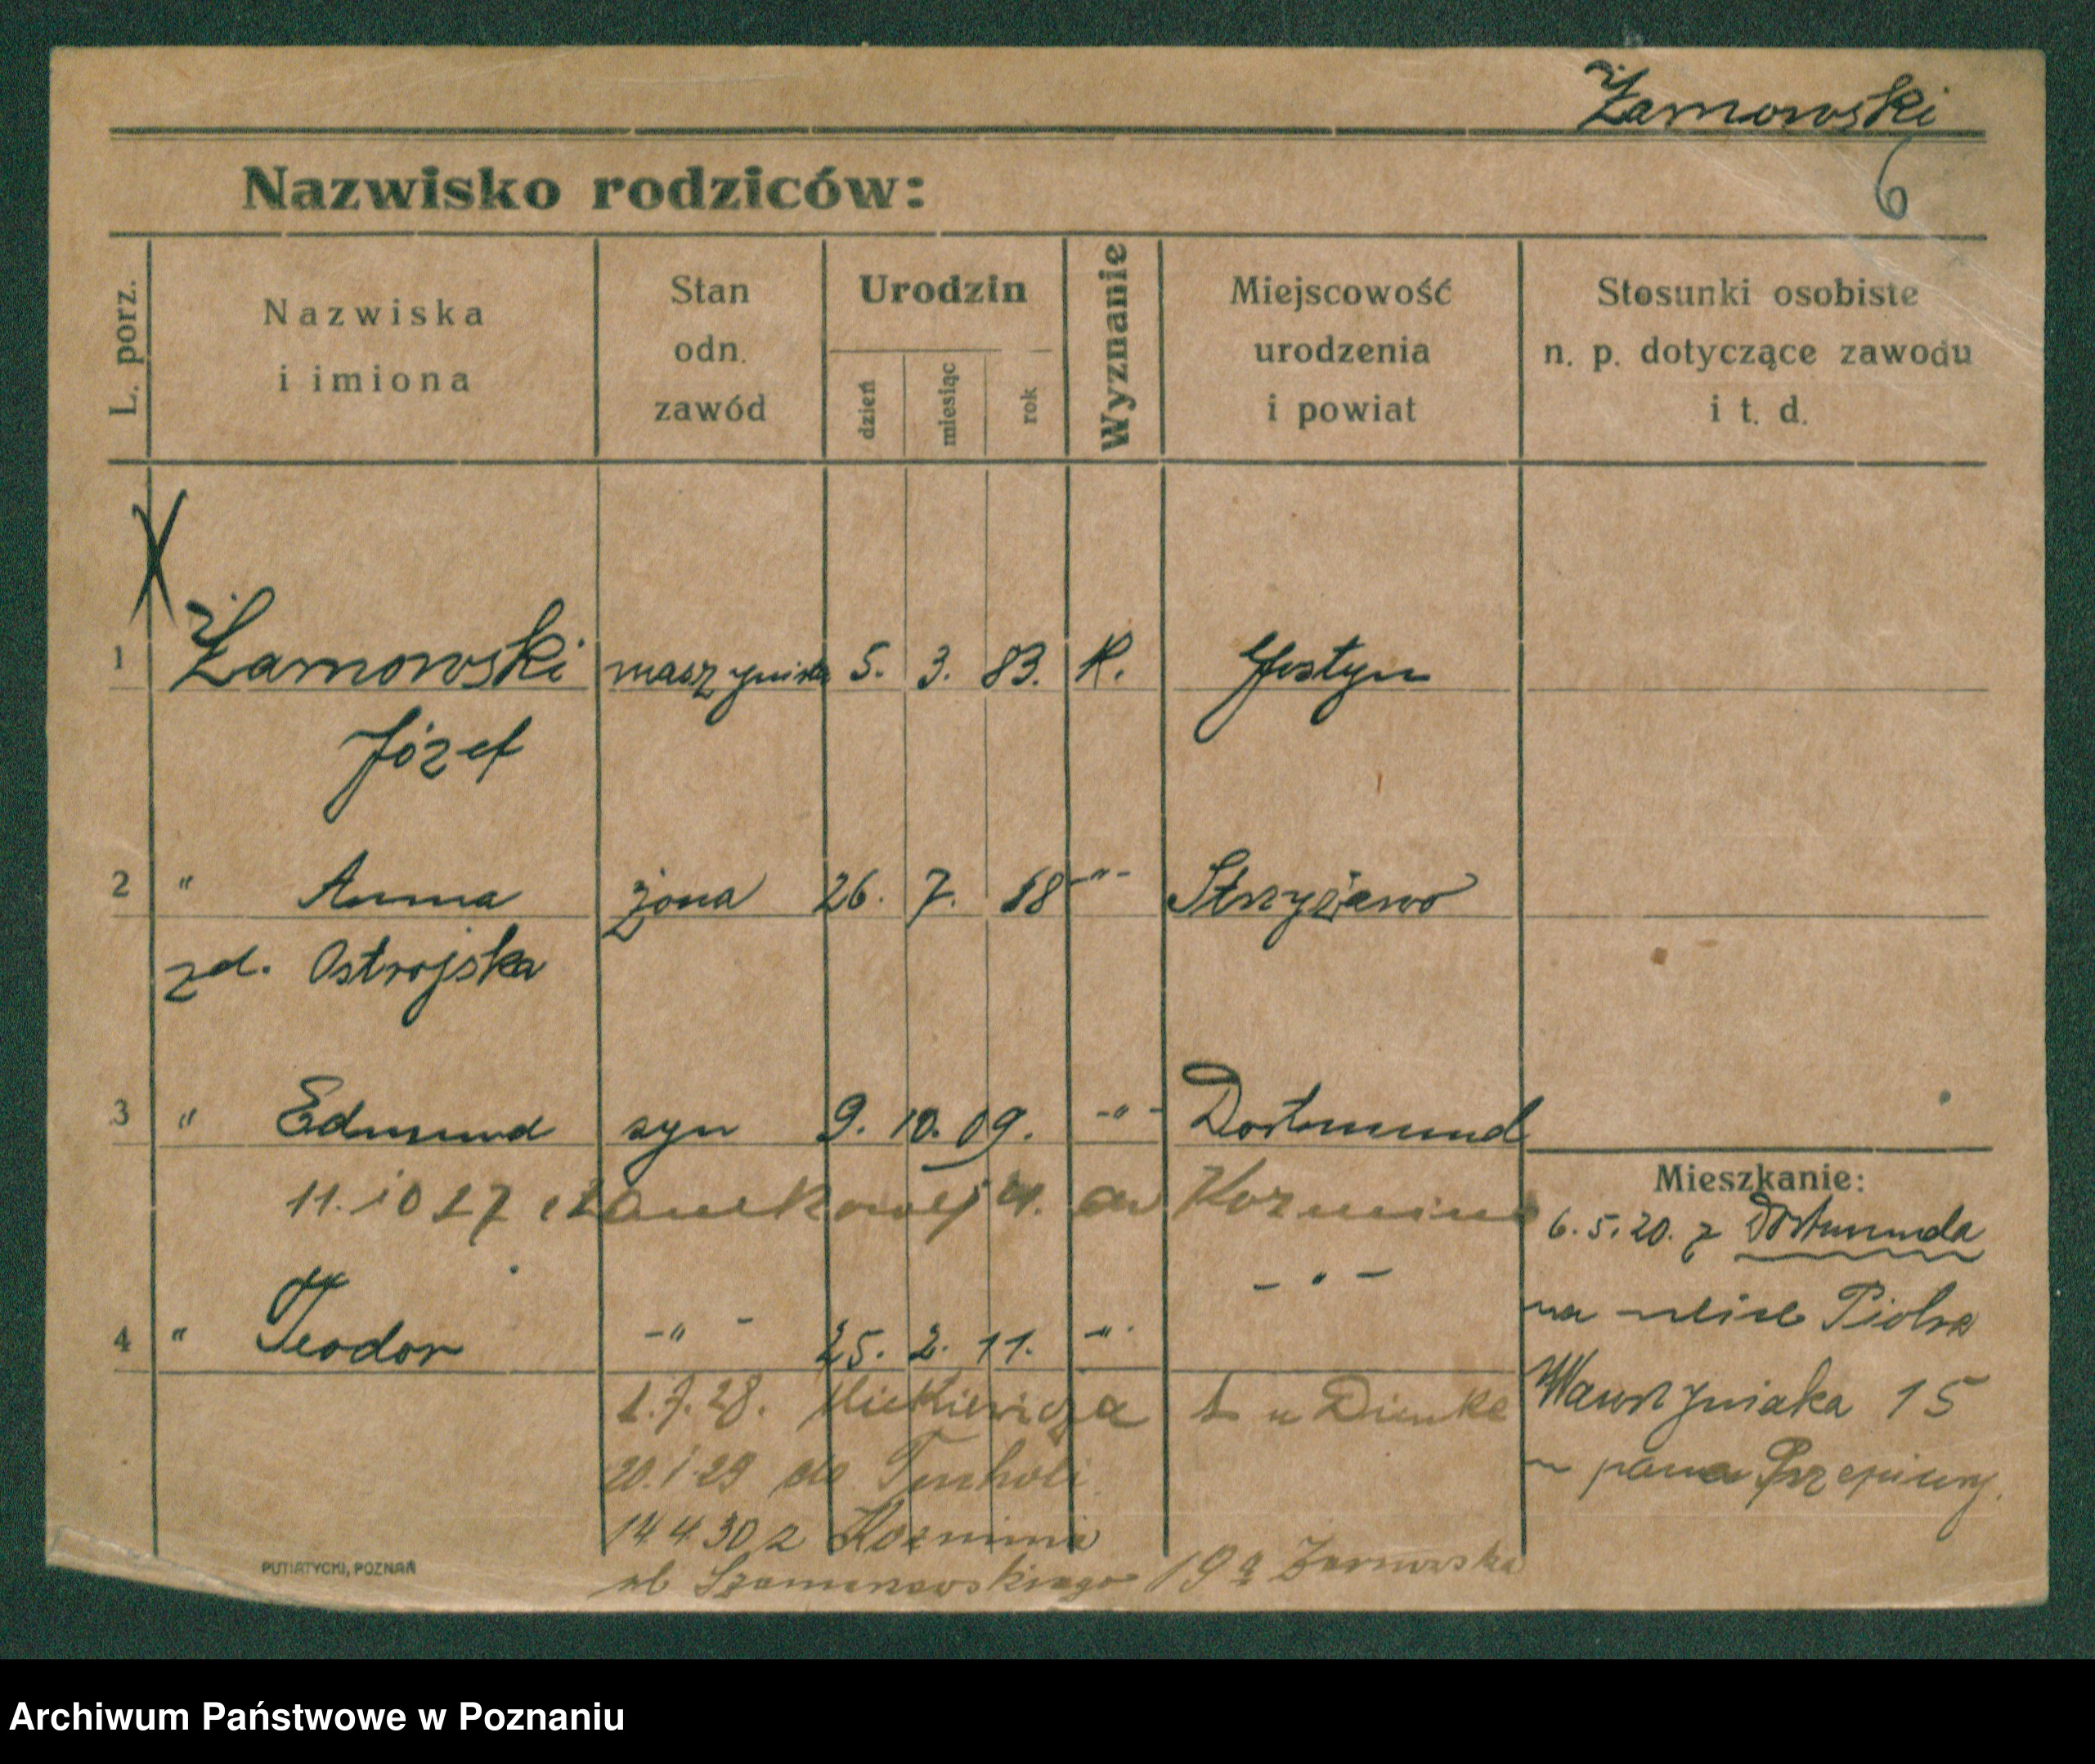 Żarnowski
6
Nazwisko rodziców:
L. porz.
Nazwiska
i imiona
Stan
odn.
zawód
Urodzin
dzień
miesiąc
rok
Wyznanie
Miejscowość
urodzenia
i powiat
Stosunki osobiste
n. p. dotyczące zawodu
i t. d.
X
1 Żarnowski maszynista 5. 3. 83. K. Gostyn
Józef
2 " Anna żona 26. 7. 88 -"- Strzyżewo
zd. Ostrojska
3 " Edmund syn 9. 10. 09. -"- Dortmund
11. 10 27 4. Kozmina
4 " Teodor -"- 25. 2. 11. -"- -"-
Mieszkanie:
6.5.20. z Dortmunda
na ulice Piotra
Wawrzyniaka 15
u pana
1.7.28. Mickiewicza 1 u
20.1.29 do Tucholi
14 4 30 z Kozmina
ul 19a Żarnowska
PUTIATYCKI, POZNAŃ
Archiwum Państwowe w Poznaniu